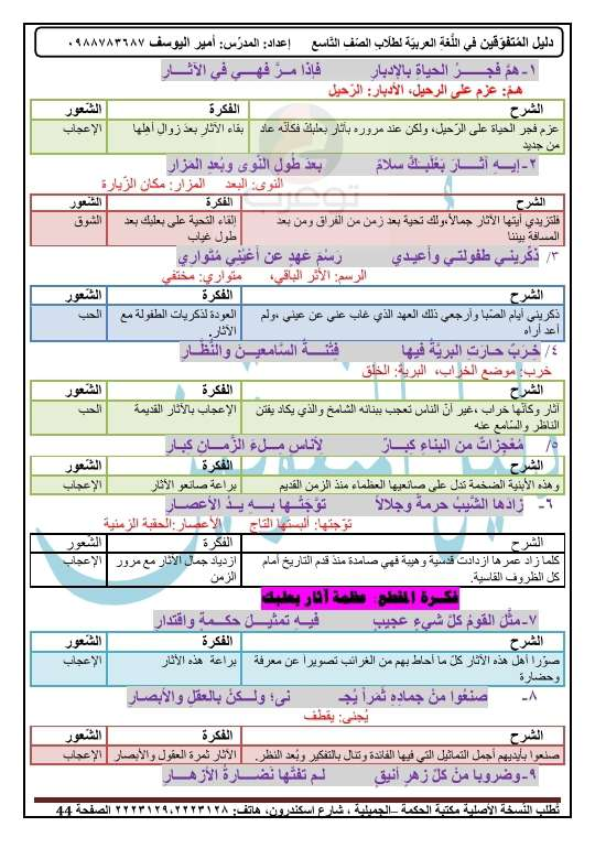 دليل المُتفوّقين في اللّغةِ العربيّة لطلّابِ الصّفِ التّاسع إعداد: المدرّس: أمير اليوسف ٠٩٨٨٧٨٣٦٨٧
١- همَّ فجـــرُ الحياةِ بالإدبارِ فإذا مـرَّ فهـي في الآثـــار
همّ: عزم على الرحيل، الأدبار: الرّحيل
الشرح الفكرة الشّعور
عزم فجر الحياة على الرّحيل، ولكن عند مروره بآثار بعلبك فكأنّه عاد من جديد بقاء الآثار بعدَ زوالِ أهلِها الإعجاب
٢- إيـهِ آثــارَ بَعْلَبـكَّ سلامٌ بعدَ طُولِ النَّوى وبُعدِ المَزارِ
النوى: البعد المزار: مكان الزّيارة
الشرح الفكرة الشّعور
فلتزيدي أيتها الآثار جمالاً،ولك تحية بعد زمن من الفراق ومن بعد المسافة بيننا إلقاء التحية على بعلبك بعد طول غياب الشوق
٣/ ذكّرينـي طفولتـي وأَعيـدي رَسْمَ عَهدٍ عن أعْيُني مُتَواري
الرسم: الأثر الباقي، متواري: مختفي
الشرح الفكرة الشّعور
ذكريني أيام الصّبا وأرجعي ذلك العهد الذي غاب عني عن عيني ،ولم أعد أراه العودة لذكريات الطفولة مع الآثار. الحب
٤/ خـرَبٌ حـارَتِ البريّـةُ فيهـا فِتْنــــةُ السَّامعيــنَ والنُّظَّــارِ
خرب: موضع الخراب، البرية: الخلْق
الشرح الفكرة الشّعور
آثار وكأنّها خراب ،غير أنّ الناس تعجب ببنائه الشامخ والذي يكاد يفتن الناظر والسّامع عنه الإعجاب بالآثار القديمة الحب
٥/ مُعْجِزاتٌ من البناءِ كِبـــارٌ لأناسٍ مِــلءَ الزَّمــانِ كِبار
الشرح الفكرة الشّعور
وهذه الأبنية الضخمة تدل على صانعيها العظماء منذ الزمن القديم براعة صانعو الآثار الإعجاب
٦- زادَها الشَّيبُ حُرمةً وجَلالاً توّجَتْــها بــه يــدُ الأعصــار
توّجتها: ألبستها التاج الأعصار:الحقبة الزمنية
الشرح الفكرة الشّعور
كلما زاد عمرها ازدادت قدسية وهيبة فهي صامدة منذ قدم التاريخ أمام كل الظروف القاسية. ازدياد جمال الآثار مع مرور الزمن الإعجاب
فكـرة المقطع: عظمة آثار بعلبك
٧- مثّلَ القومُ كلَّ شيءٍ عجيبٍ فيـهِ تمثيــلَ حكــمةٍ واقتدار
الشرح الفكرة الشّعور
صوّرا أهل هذه الآثار كلّ ما أحاط بهم من الغرائب تصويراً عن معرفة وحضارة براعة هذه الآثار الإعجاب
٨- صنعُوا منْ جمادِهِ ثمراً يُجـ نى؛ ولــكنْ بالعقلِ والأبصارِ
يُجنى: يقطف
الشرح الفكرة الشّعور
صنعوا بأيديهم أجمل التماثيل التي فيها الفائدة وتنال بالتفكير وبُعد النظر. الآثار ثمرة العقول والأبصار الإعجاب
٩- وضروبا منْ كلِّ زهرٍ أنيقٍ لـم تفتْها نَضـارةُ الأزهــارِ
تُطلب النّسخة الأصلية مكتبة الحكمة –الجميلية ، شارع اسكندرون، هاتف: ٢٢٢٣١٢٨،٢٢٢٣١٢٩ الصفحة 44